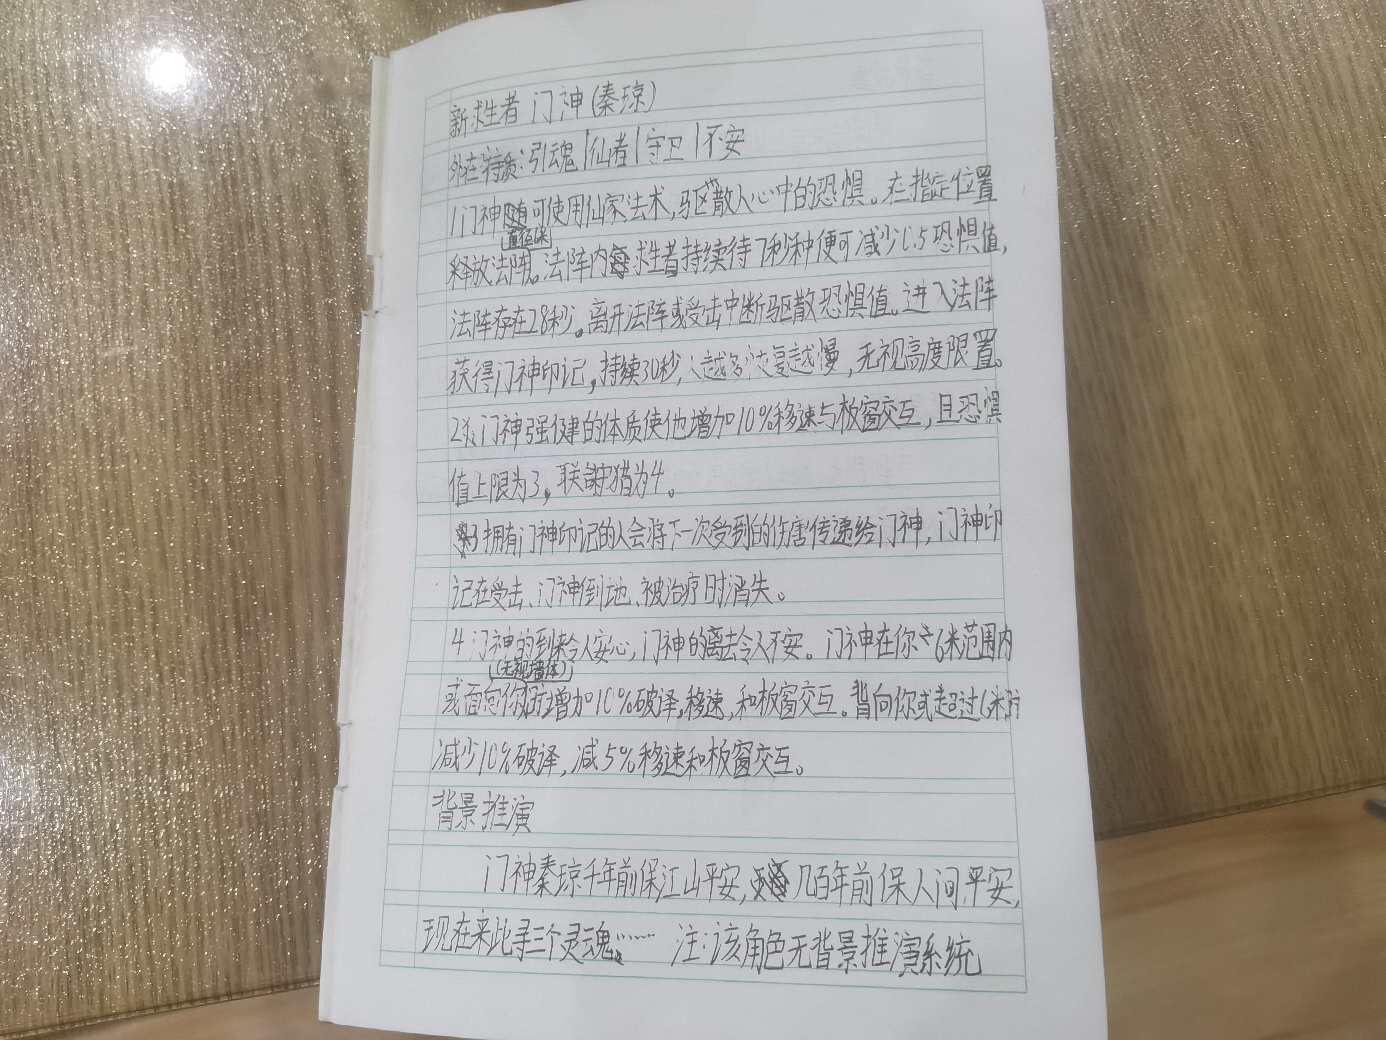 新求生者 门神(秦琼)
外在特质:引魂|仙者|守卫|不安
1门神可使用仙家法术,驱散人心中的恐惧。在指定位置
释放法阵。法阵内每求生者持续待7秒种便可减少0.5恐惧值,
法阵存在28秒。离开法阵或受击中断驱散恐惧值。进入法阵
获得门神印记,持续30秒,人越多恢复越慢,无视高度限置。
2 门神强健的体质使他增加10%移速与板窗交互,且恐惧
值上限为3,联合狩猎为4。
3 拥有门神印记的人会将下一次受到的伤害传递给门神,门神印
记在受击、门神到地、被治疗时消失。
4 门神的到来令人安心,门神的离去令人不安。门神在你6米范围内
(无视墙体)
或面向你时增加10%破译,移速,和板窗交互。背向你或超过6米时
减少10%破译,减5%移速和板窗交互。
背景推演
门神秦琼千年前保江山平安,几百年前保人间平安,
现在来此寻三个灵魂…… 注:该角色无背景推演系统